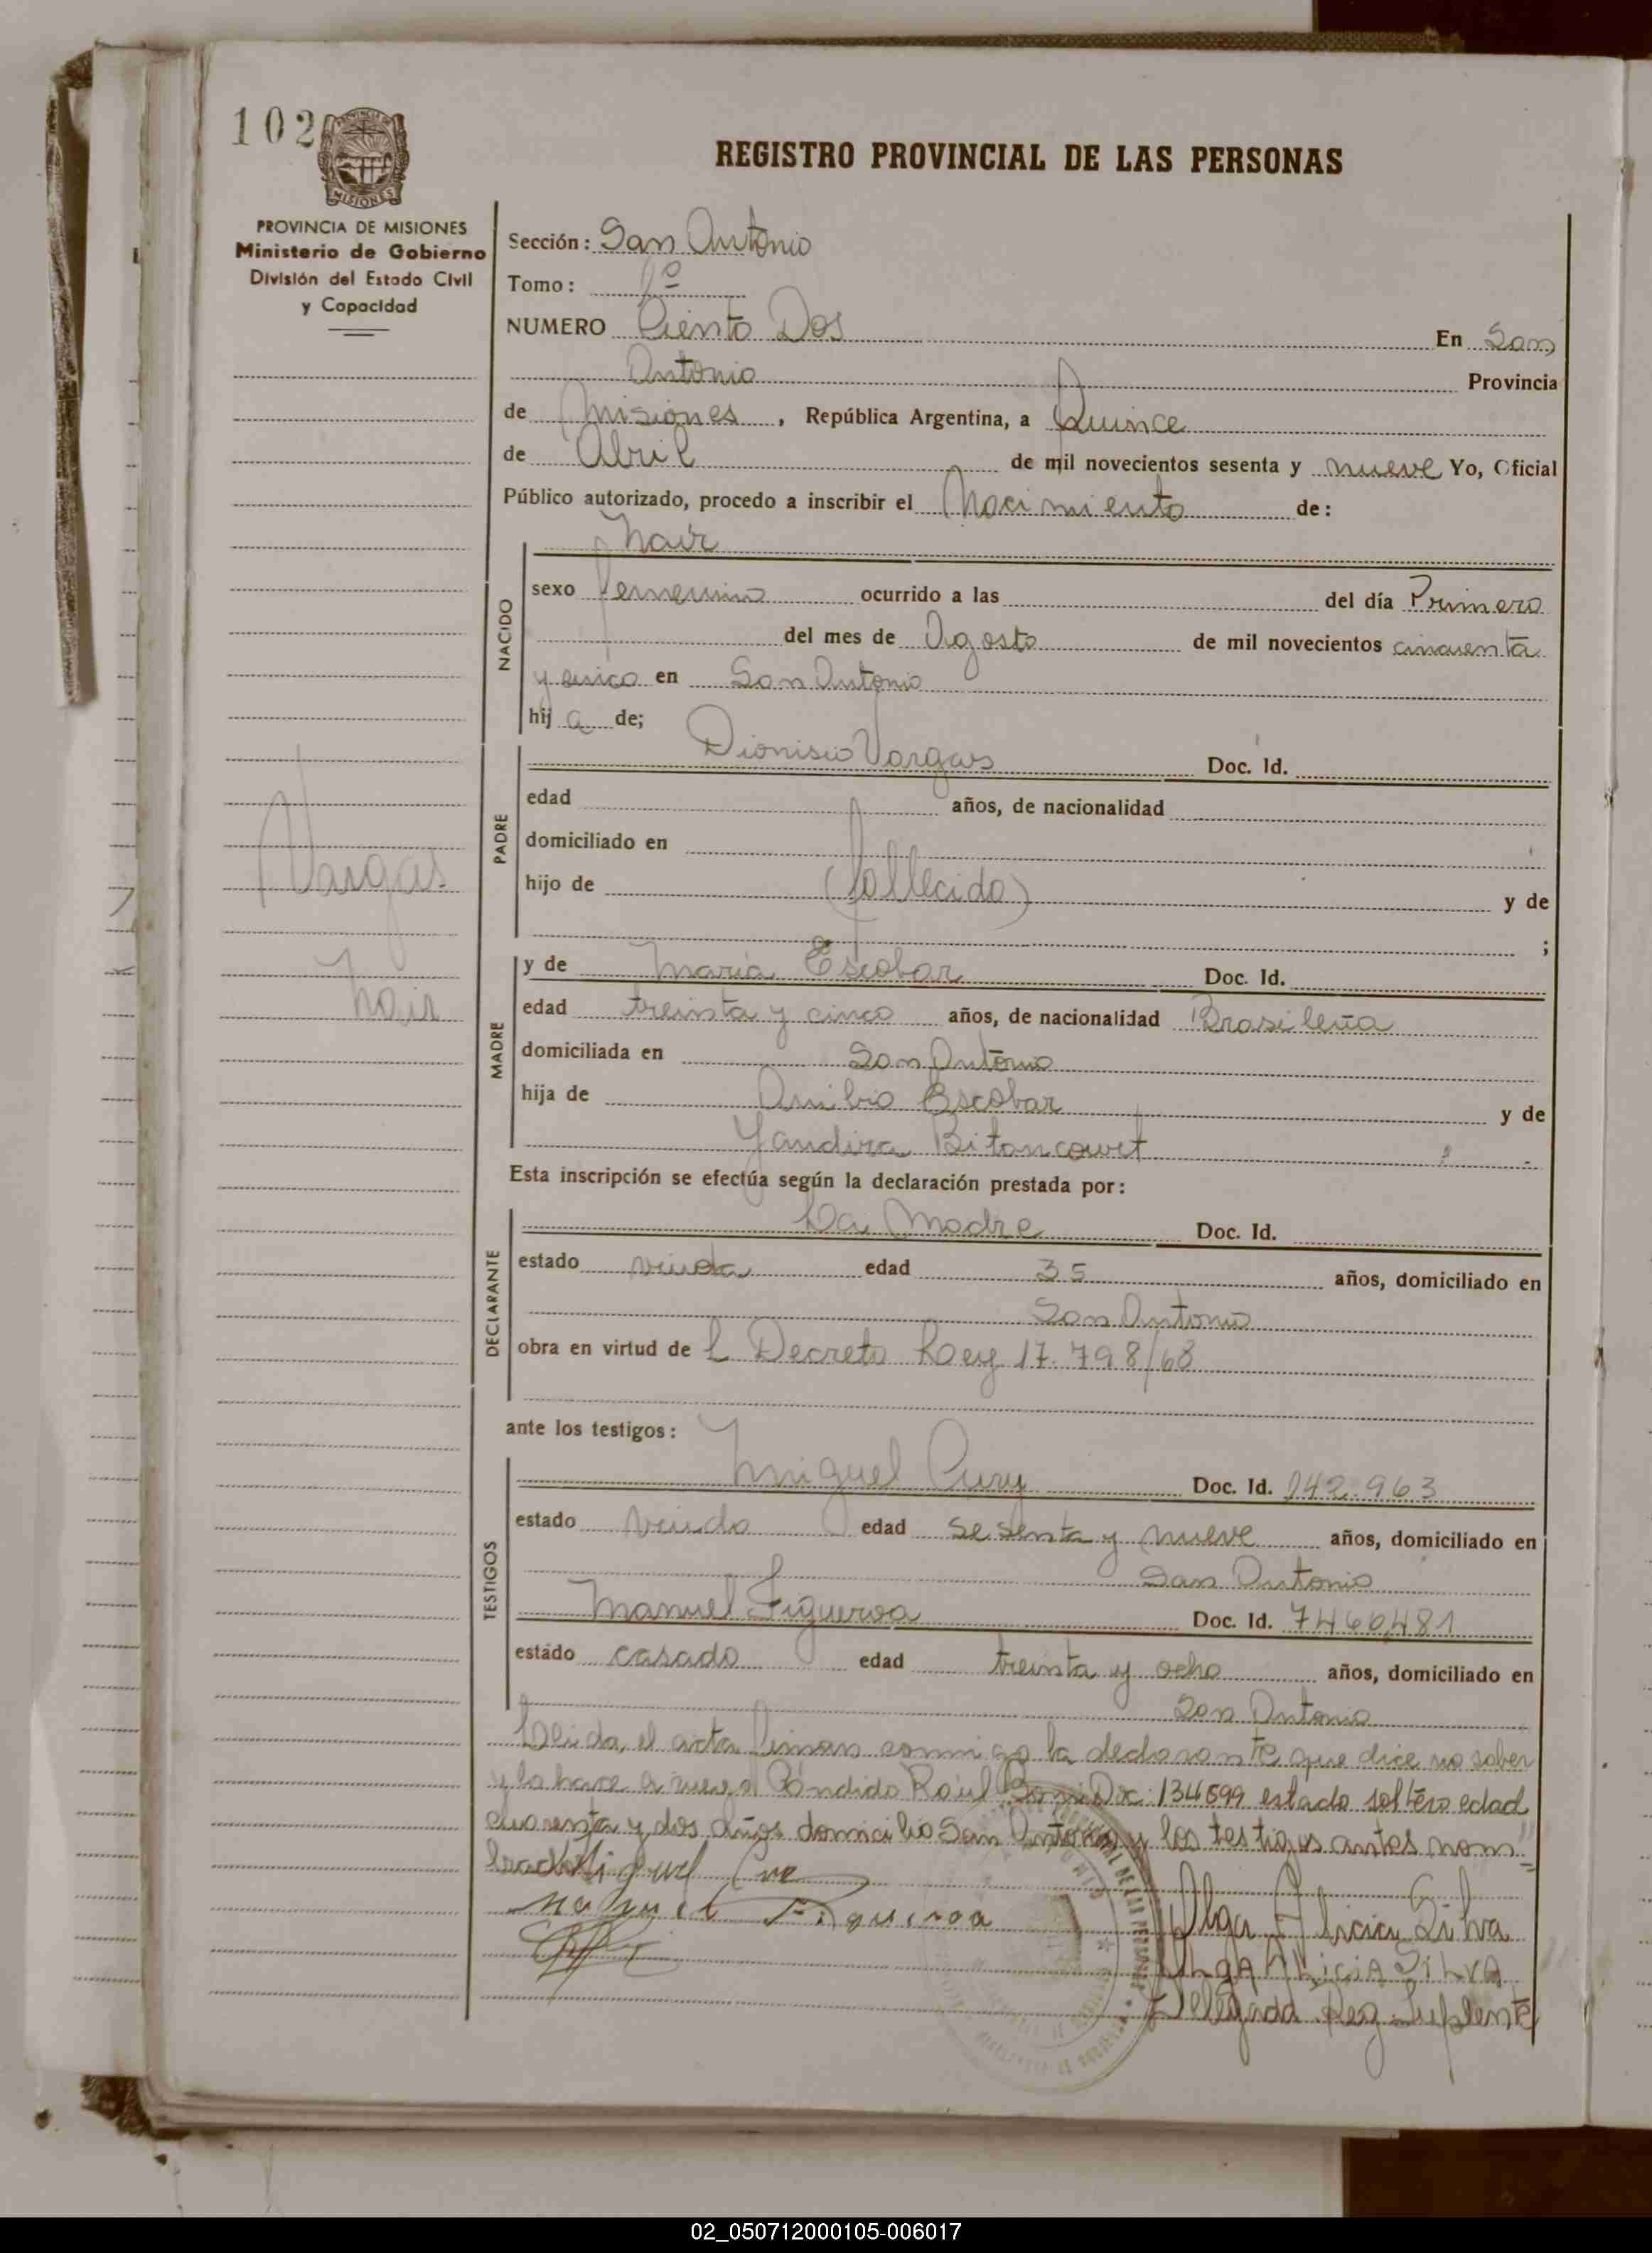 102
PROVINCIA DE MISIONES
MISIONES
PROVINCIA DE MISIONES
Ministerio de Gobierno
División del Estado Civil
y Capacidad
REGISTRO PROVINCIAL DE LAS PERSONAS
Sección: San Antonio
Tomo: 1º
NUMERO Ciento Dos En San
Antonio Provincia
de Misiones, República Argentina, a Quince
de Abril de mil novecientos sesenta y nueve Yo, Oficial
Público autorizado, procedo a inscribir el Nacimiento de:
Nair
NACIDO
sexo femenino ocurrido a las del día Primero
del mes de Agosto de mil novecientos cincuenta
y cinco en San Antonio
hij a de;
PADRE
Dionisio Vargas Doc. Id.
edad años, de nacionalidad
domiciliado en
hijo de (fallecido) y de
;
Vargas
Nair
MADRE
y de María Escobar Doc. Id.
edad treinta y cinco años, de nacionalidad Brasileña
domiciliada en San Antonio
hija de Escobar y de
Yandira Bitancourt
Esta inscripción se efectúa según la declaración prestada por:
DECLARANTE
La Madre Doc. Id.
estado viuda edad 35 años, domiciliado en
San Antonio
obra en virtud de L Decreto Ley 17.798/68
ante los testigos:
TESTIGOS
Miguel Doc. Id. 142.963
estado viudo edad sesenta y nueve años, domiciliado en
San Antonio
Manuel Figueroa Doc. Id. 7460,481
estado casado edad treinta y ocho años, domiciliado en
San Antonio
Leida, el acta firman conmigo la declarante que dice no saber
y lo hace a ruego Cándido Raúl Doc: 134599 estado soltero edad
cuarenta y dos años domicilio San Antonio y los testigos antes nom
brados Miguel
Manuel Figueroa
Olga Alicia Silva
OLGA ALICIA SILVA
Delegada Reg. Suplente
02_050712000105-006017